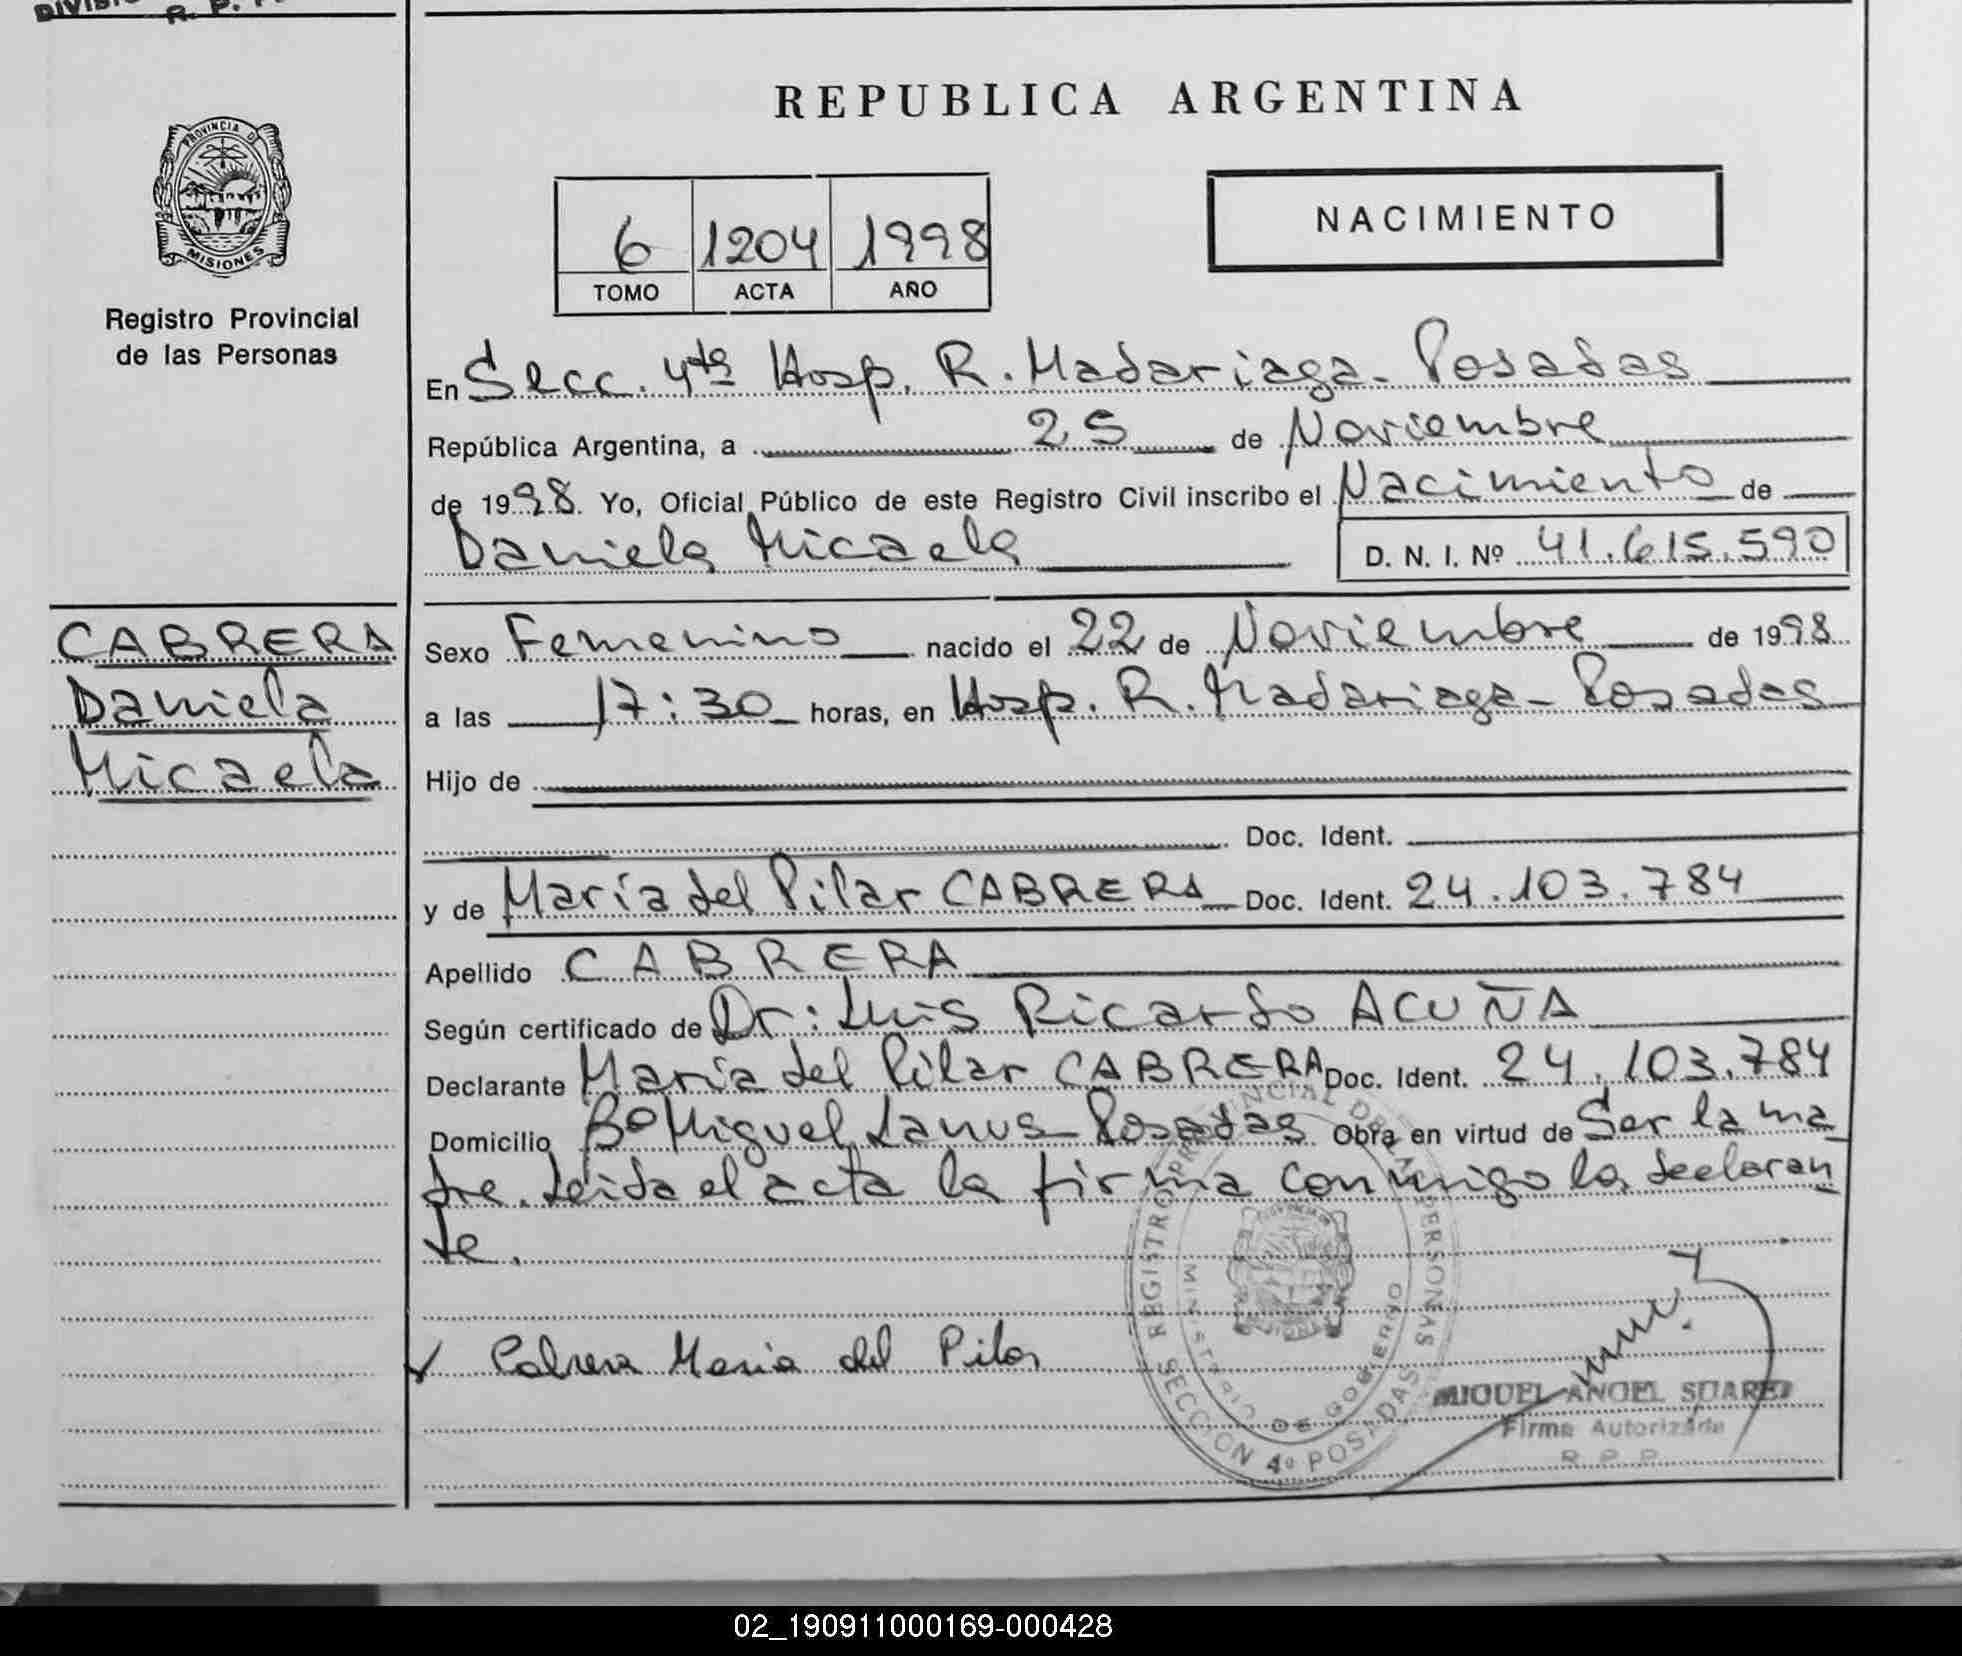 DIVISIO
R. P. P.
REPUBLICA ARGENTINA
PROVINCIA DE
MISIONES
Registro Provincial
de las Personas
6 1204 1998
TOMO ACTA AÑO
NACIMIENTO
En Secc. 4ta Hosp. R. Madariaga - Posadas
República Argentina, a 25 de Noviembre
de 1998 Yo, Oficial Público de este Registro Civil inscribo el Nacimiento de
Daniela Micaela D. N. I. Nº 41.615.590
CABRERA
Daniela
Micaela
Sexo Femenino nacido el 22 de Noviembre de 1998
a las 17:30 horas, en Hosp. R. Madariaga - Posadas
Hijo de
Doc. Ident.
y de María del Pilar CABRERA Doc. Ident. 24.103.784
Apellido CABRERA
Según certificado de Dr: Luis Ricardo ACUÑA
Declarante María del Pilar CABRERA Doc. Ident. 24.103.784
Domicilio Bº Miguel Lanus - Posadas Obra en virtud de Ser la ma
dre. Leida el acta la firma conmigo la declaran
te.
Cabrera Maria del Pilar
REGISTRO PROVINCIAL DE LAS PERSONAS
MINISTERIO DE GOBIERNO
SECCION 4º POSADAS
MIGUEL ANGEL SUAREZ
Firma Autorizada
R. P. P.
02_190911000169-000428